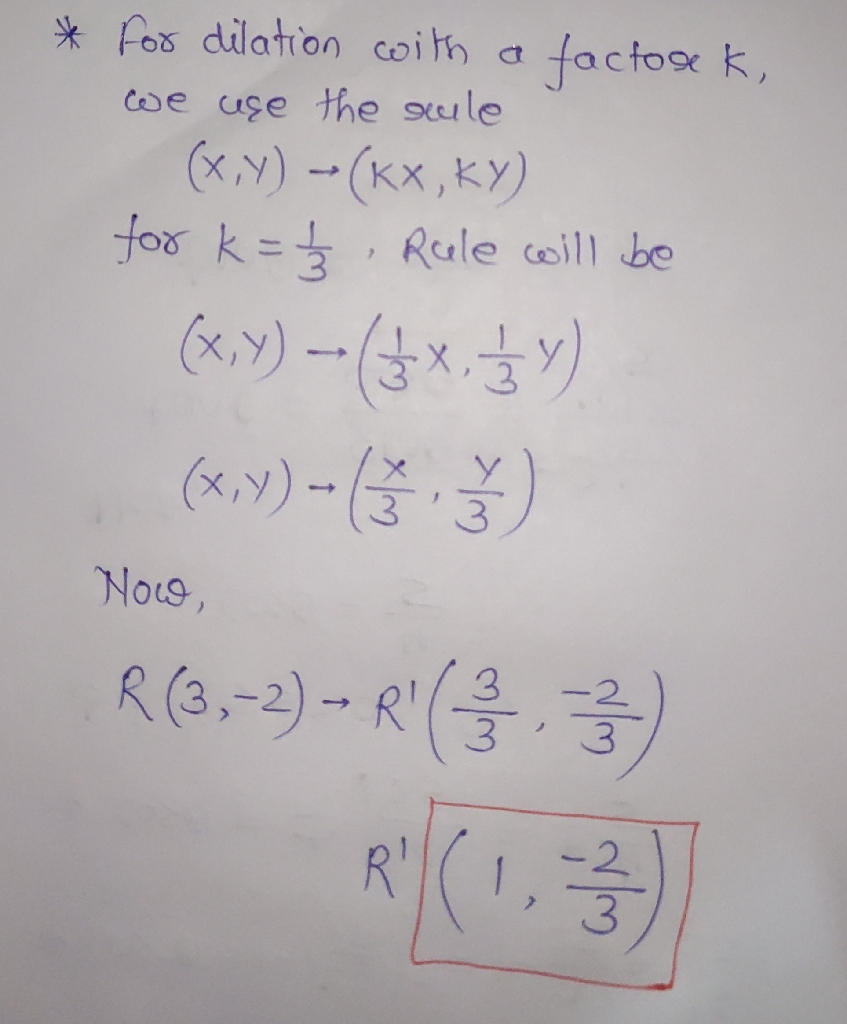 * For dilation with a factor k,
we use the rule
(x,y) → (kx, ky)
for k = 1/3, Rule will be
(x,y) → (1/3 x, 1/3 y)
(x,y) → (x/3, y/3)
Now,
R(3,-2) → R'(3/3, -2/3)
R'(1, -2/3)